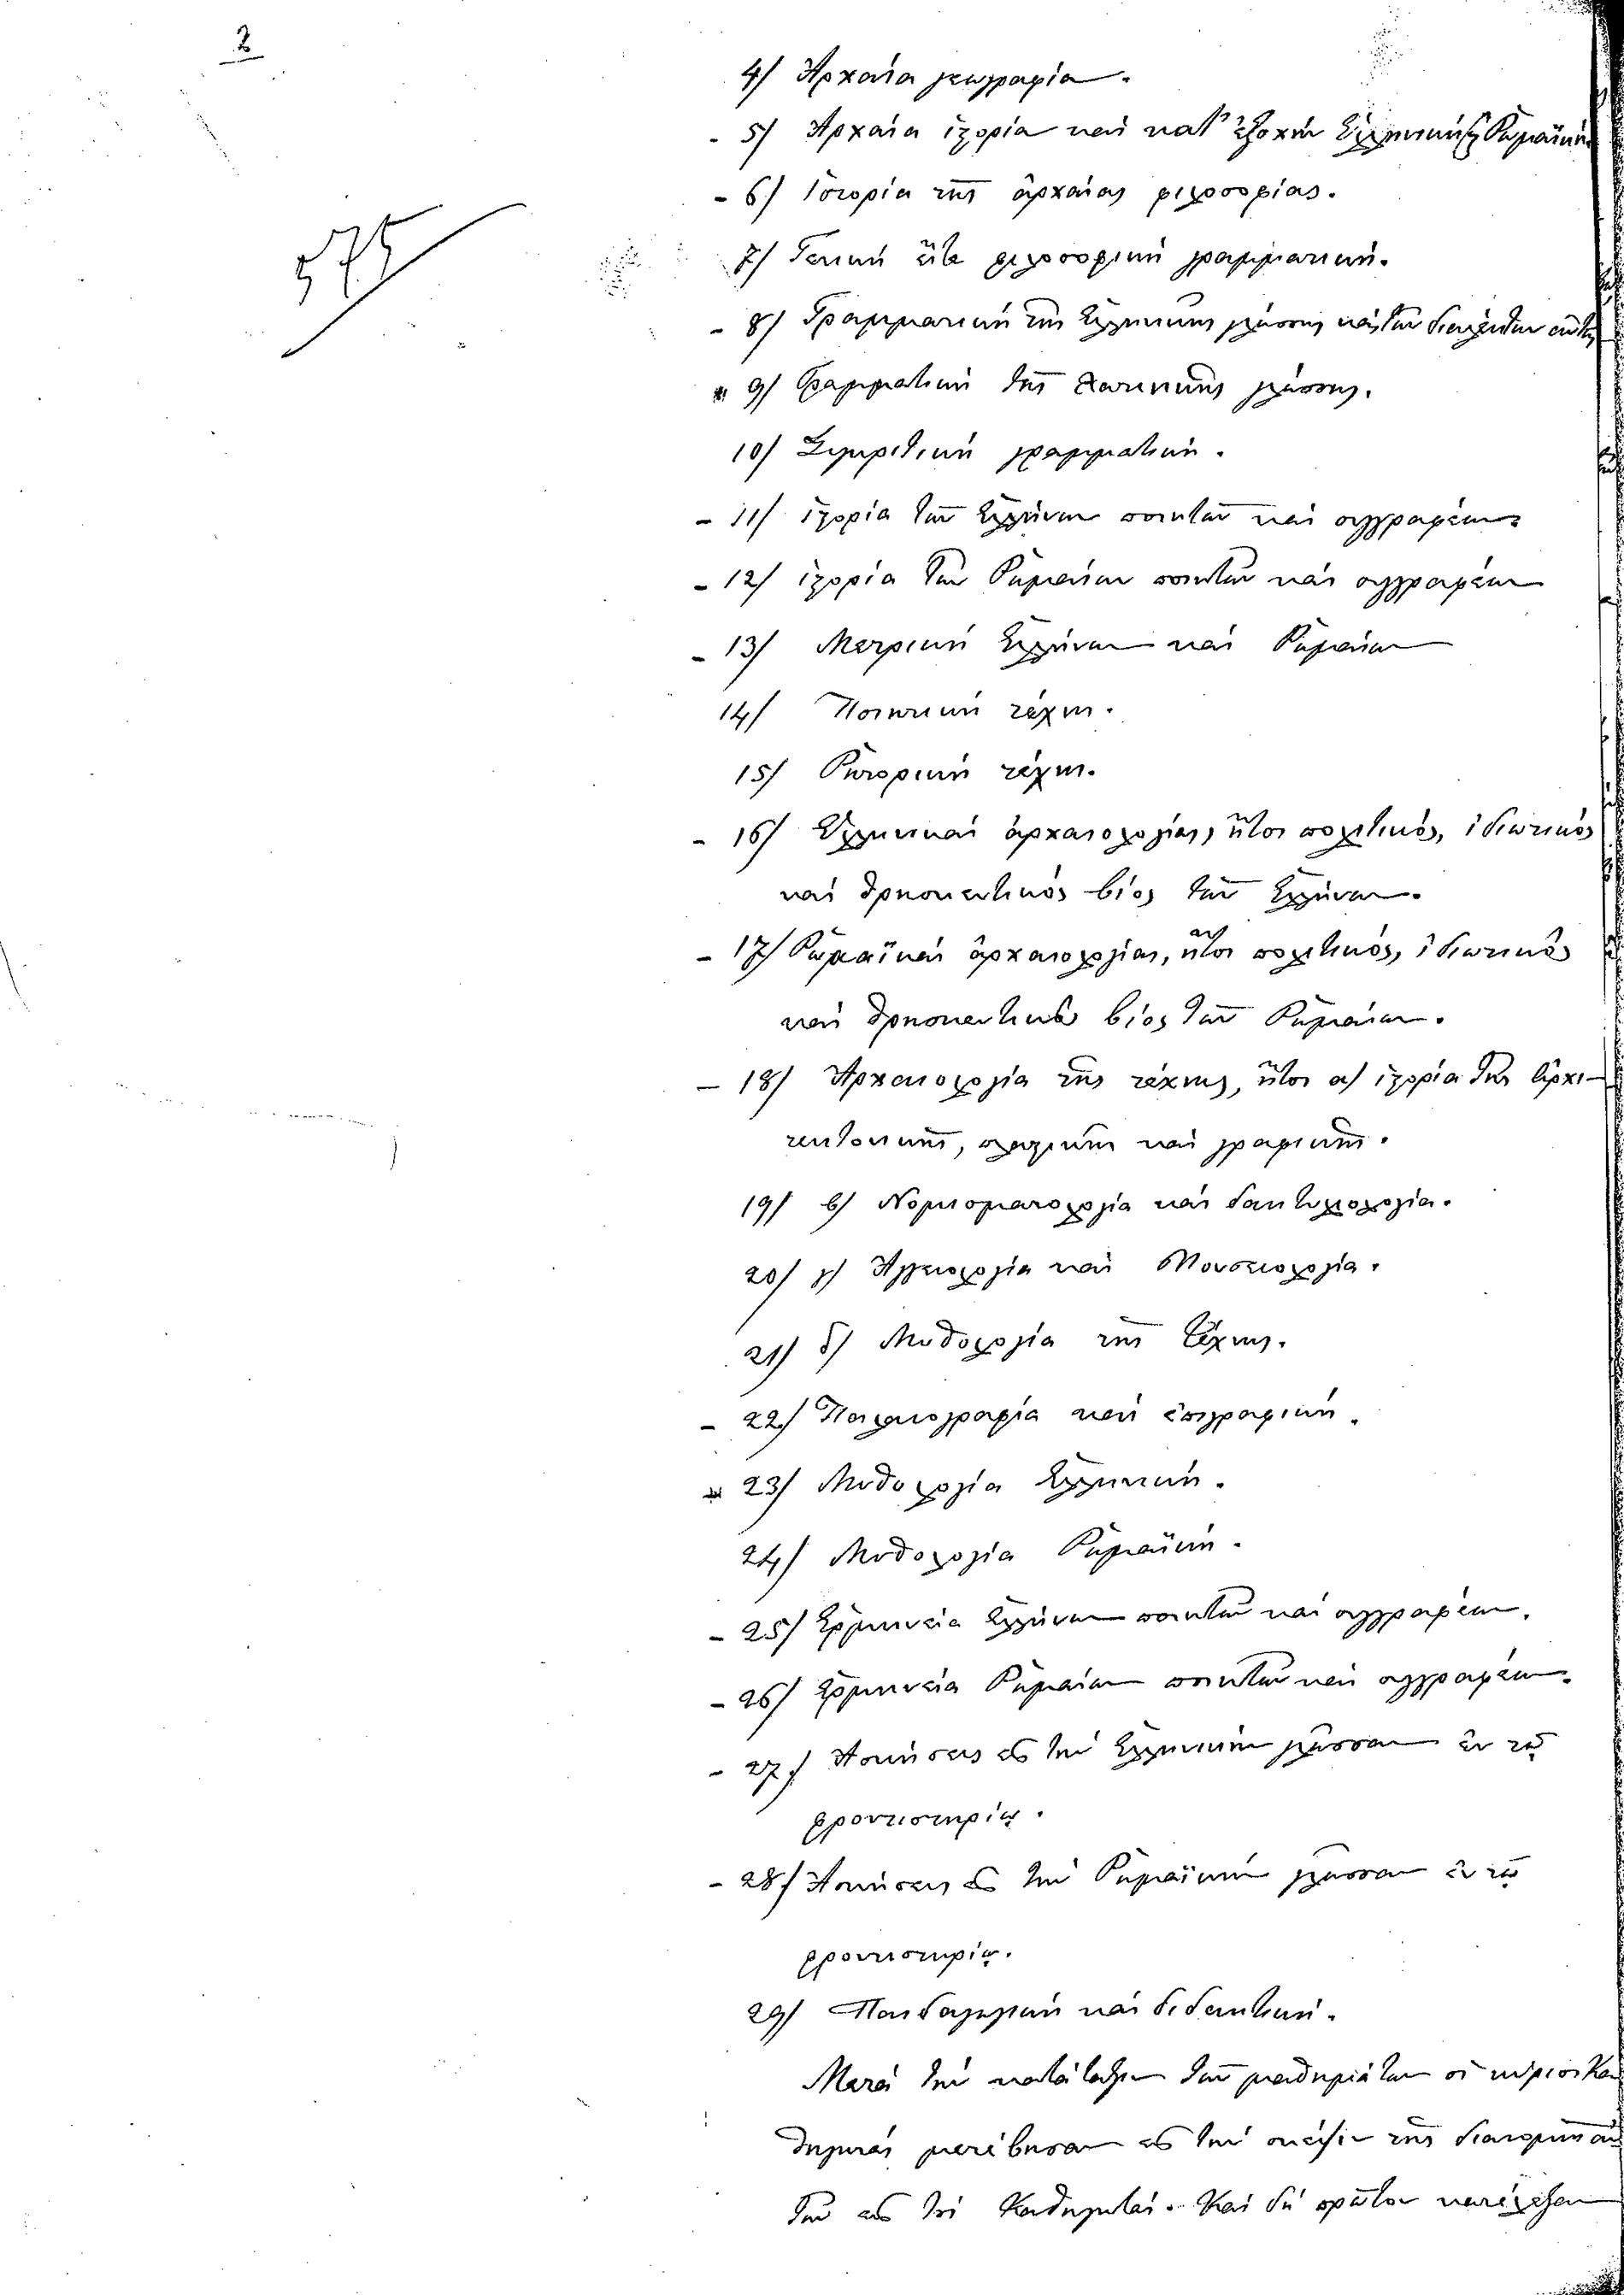 2
4) Ἀρχαία γεωγραφία.
- 5) Ἀρχαία ἱστορία καὶ κατ' ἐξοχὴν Ἑλληνικὴ Ῥωμαϊκὴ
- 6) Ἱστορία τῆς ἀρχαίας φιλοσοφίας.
7) Γενικὴ εἴτε φιλοσοφικὴ γραμματική.
- 8) Γραμματικὴ τῆς Ἑλληνικῆς γλώσσης καὶ τῶν διαλέκτων αὐτῆς
- 9) Γραμματικὴ τῆς Λατινικῆς γλώσσης.
10) Συγκριτικὴ γραμματική.
- 11) ἱστορία τῶν Ἑλλήνων ποιητῶν καὶ συγγραφέων
- 12) ἱστορία τῶν Ῥωμαίων ποιητῶν καὶ συγγραφέων
- 13) Μετρικὴ Ἑλλήνων καὶ Ῥωμαίων
14) Ποιητικὴ τέχνη.
15) Ῥητορικὴ τέχνη.
- 16) Ἑλληνικαὶ ἀρχαιολογίαι, ἤτοι πολιτικός, ἰδιωτικὸς
καὶ θρησκευτικὸς βίος τῶν Ἑλλήνων.
- 17) Ῥωμαϊκαὶ ἀρχαιολογίαι, ἤτοι πολιτικός, ἰδιωτικὸς
καὶ θρησκευτικὸς βίος τῶν Ῥωμαίων.
- 18) Ἀρχαιολογία τῆς τέχνης, ἤτοι α) ἱστορία τῆς ἀρχι-
τεκτονικῆς, πλαστικῆς καὶ γραφικῆς.
19) β) Νομισματολογία καὶ δακτυλιολογία.
20) γ) Ἀγγειολογία καὶ Μουσειολογία.
21) δ) Μυθολογία τῆς τέχνης.
- 22) Παλαιογραφία καὶ ἐπιγραφική.
- 23) Μυθολογία Ἑλληνική.
24) Μυθολογία Ῥωμαϊκή.
- 25) Ἑρμηνεία Ἑλλήνων ποιητῶν καὶ συγγραφέων.
- 26) Ἑρμηνεία Ῥωμαίων ποιητῶν καὶ συγγραφέων.
- 27) Ἀσκήσεις εἰς τὴν Ἑλληνικὴν γλῶσσαν ἐν τῷ
φροντιστηρίῳ.
- 28) Ἀσκήσεις εἰς τὴν Ῥωμαϊκὴν γλῶσσαν ἐν τῷ
φροντιστηρίῳ.
29) Παιδαγωγικὴ καὶ διδακτική.
Μετὰ τὴν κατάταξιν τῶν μαθημάτων οἱ κύριοι Κα
θηγηταὶ μετέβησαν εἰς τὴν σκέψιν τῆς διανομῆς αὐ
τῶν εἰς τοὺς Καθηγητάς. Καὶ δὴ πρῶτον κατέλεξαν